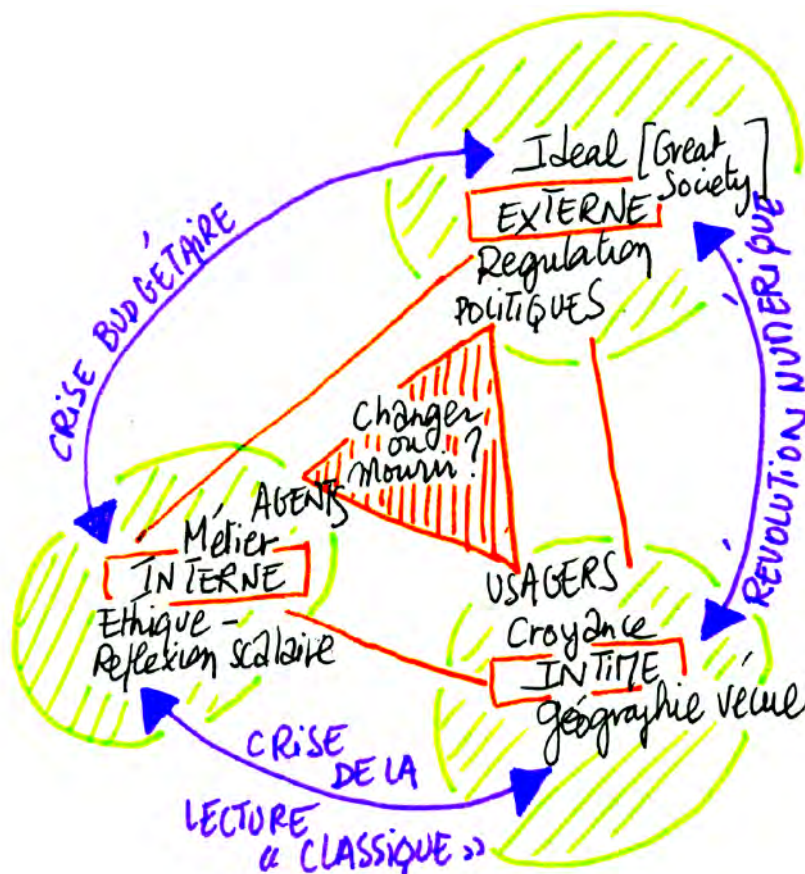 Ideal [Great
Society]
EXTERNE
Regulation
POLITIQUES
CRISE BUDGÉTAIRE
RÉVOLUTION NUMÉRIQUE
Changer
ou
Mourir?
AGENTS
Métier
INTERNE
Ethique -
Réflexion scalaire
USAGERS
Croyance
INTIME
Géographie vécue
CRISE
DE LA
LECTURE
« CLASSIQUE »